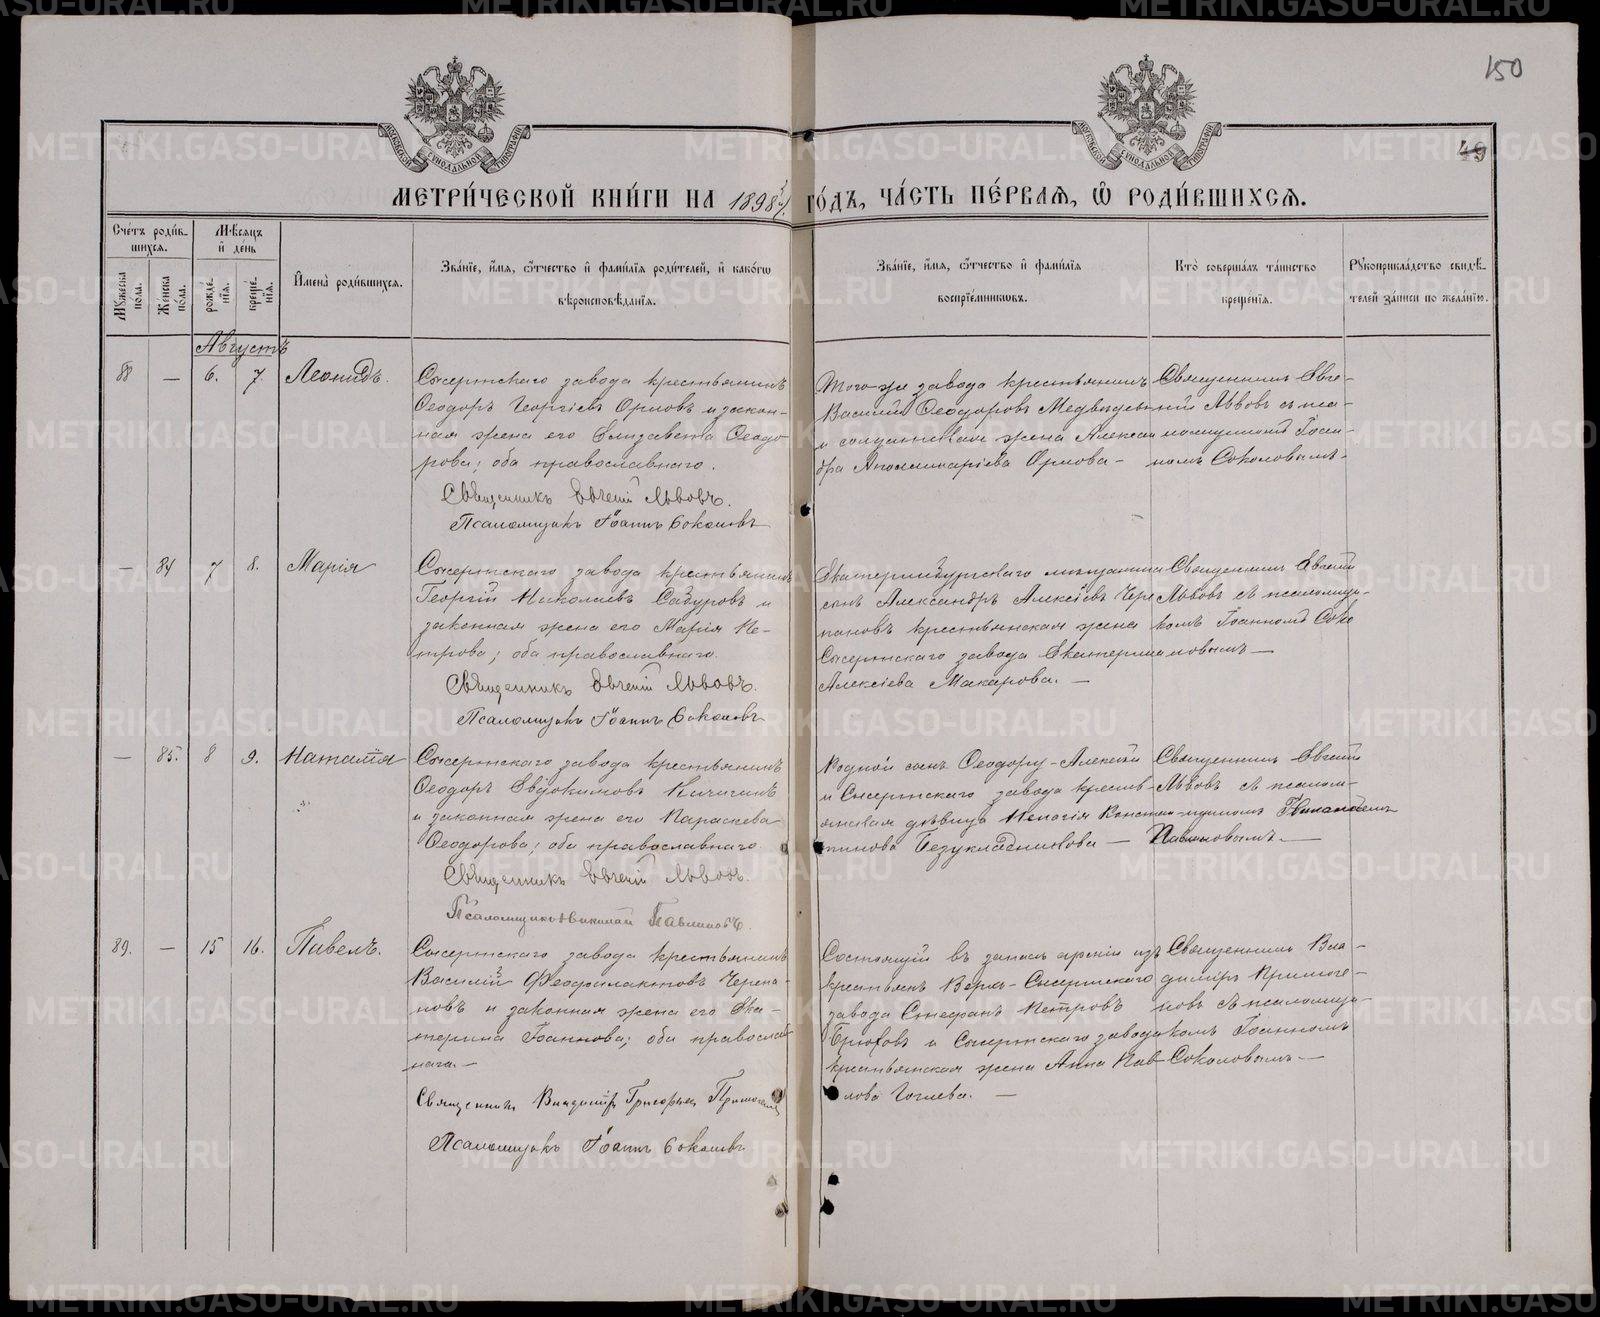 150
49
МОСКОВСКОЙ СѴНОДАЛЬНОЙ ТИПОГРАФІИ
МОСКОВСКОЙ СѴНОДАЛЬНОЙ ТИПОГРАФІИ
МЕТРИ́ЧЕСКОЙ КНИ́ГИ НА 1898 ГО́ДЪ, ЧА́СТЬ ПЕ́РВАЯ, Ѡ РОДИ́ВШИХСЯ.
Сче́тъ роди́вшихся.
Мꙋжеска по́ла.
Же́нска по́ла.
Мѣ́сяцъ и҆ де́нь
рожде́нїя.
креще́нїя.
И҆мена̀ роди́вшихся.
Зва́нїе, и҆́мя, ѻ҆́тчество и҆ фами́лїя роди́телей, и҆ како́гѡ
вѣроисповѣ́данїя.
Зва́нїе, и҆́мя, ѻ҆́тчество и҆ фами́лїя
воспрїе́мниковъ.
Кто̀ соверша́лъ та́инство
креще́нїя.
Рꙋкоприкла́дство свидѣ́телей за́писи по жела́нїю.
Августъ
88 — 6. 7. Леонидъ.
Сысертскаго завода крестьянинъ
Ѳеодоръ Георгіевъ Орловъ и закон-
ная жена его Елизавета Ѳеодо-
рова; оба православнаго.
Священникъ Евгеній Львовъ.
Псаломщикъ Іоаннъ Соколовъ
Того-же завода крестьянинъ
Василій Ѳеодоровъ Медведевъ
и солдатская жена Алексан
дра Аполлинаріева Орлова —
Священникъ Евге-
ній Львовъ съ пса-
ломщикомъ Іоан-
номъ Соколовымъ-
— 84 7 8. Марія
Сысертскаго завода крестьянинъ
Георгій Николаевъ Сабуровъ и
законная жена его Марія Пе-
трова; оба православнаго.
Священникъ Евгеній Львовъ.
Псаломщикъ Іоаннъ Соколовъ
Екатеринбургскаго мѣщанина
сынъ Александръ Алексіевъ Чере
пановъ крестьянская жена
Сысертскаго завода Екатерина
Алексіева Макарова. —
Священникъ Евгеній
Львовъ съ псаломщи-
комъ Іоанномъ Соко
ловымъ —
— 85. 8 9. Наталія
Сысертскаго завода крестьянинъ
Ѳеодоръ Евдокимовъ Кичигинъ
и законная жена его Параскева
Ѳеодорова; оба православнаго.
Священникъ Евгеній Львовъ.
Псаломщикъ Николай Павлиновъ.
Родной сынъ Ѳеодору-Алексій
и Сысертскаго завода кресть-
янская дѣвица Пелагія Констан-
тинова Безукладникова —
Священникъ Евгеній
Львовъ съ псалом-
щикомъ Николаемъ
Павлиновымъ. —
89. — 15 16. Павелъ.
Сысертскаго завода крестьянинъ
Василій Феофилактовъ Черепа-
новъ и законная жена его Ека-
терина Іоаннова; оба православ
наго. —
Священникъ Владиміръ Григорьев
Псаломщикъ Іоаннъ Соколовъ
Состоящій въ запасѣ арміи изъ
крестьянъ Верхъ-Сысертскаго
завода Стефанъ Петровъ
и Сысертскаго завода
крестьянская жена Анна Пав-
лова
Священникъ Вла-
диміръ
съ псаломщи-
комъ Іоанномъ
Соколовымъ —
METRIKI.GASO-URAL.RU